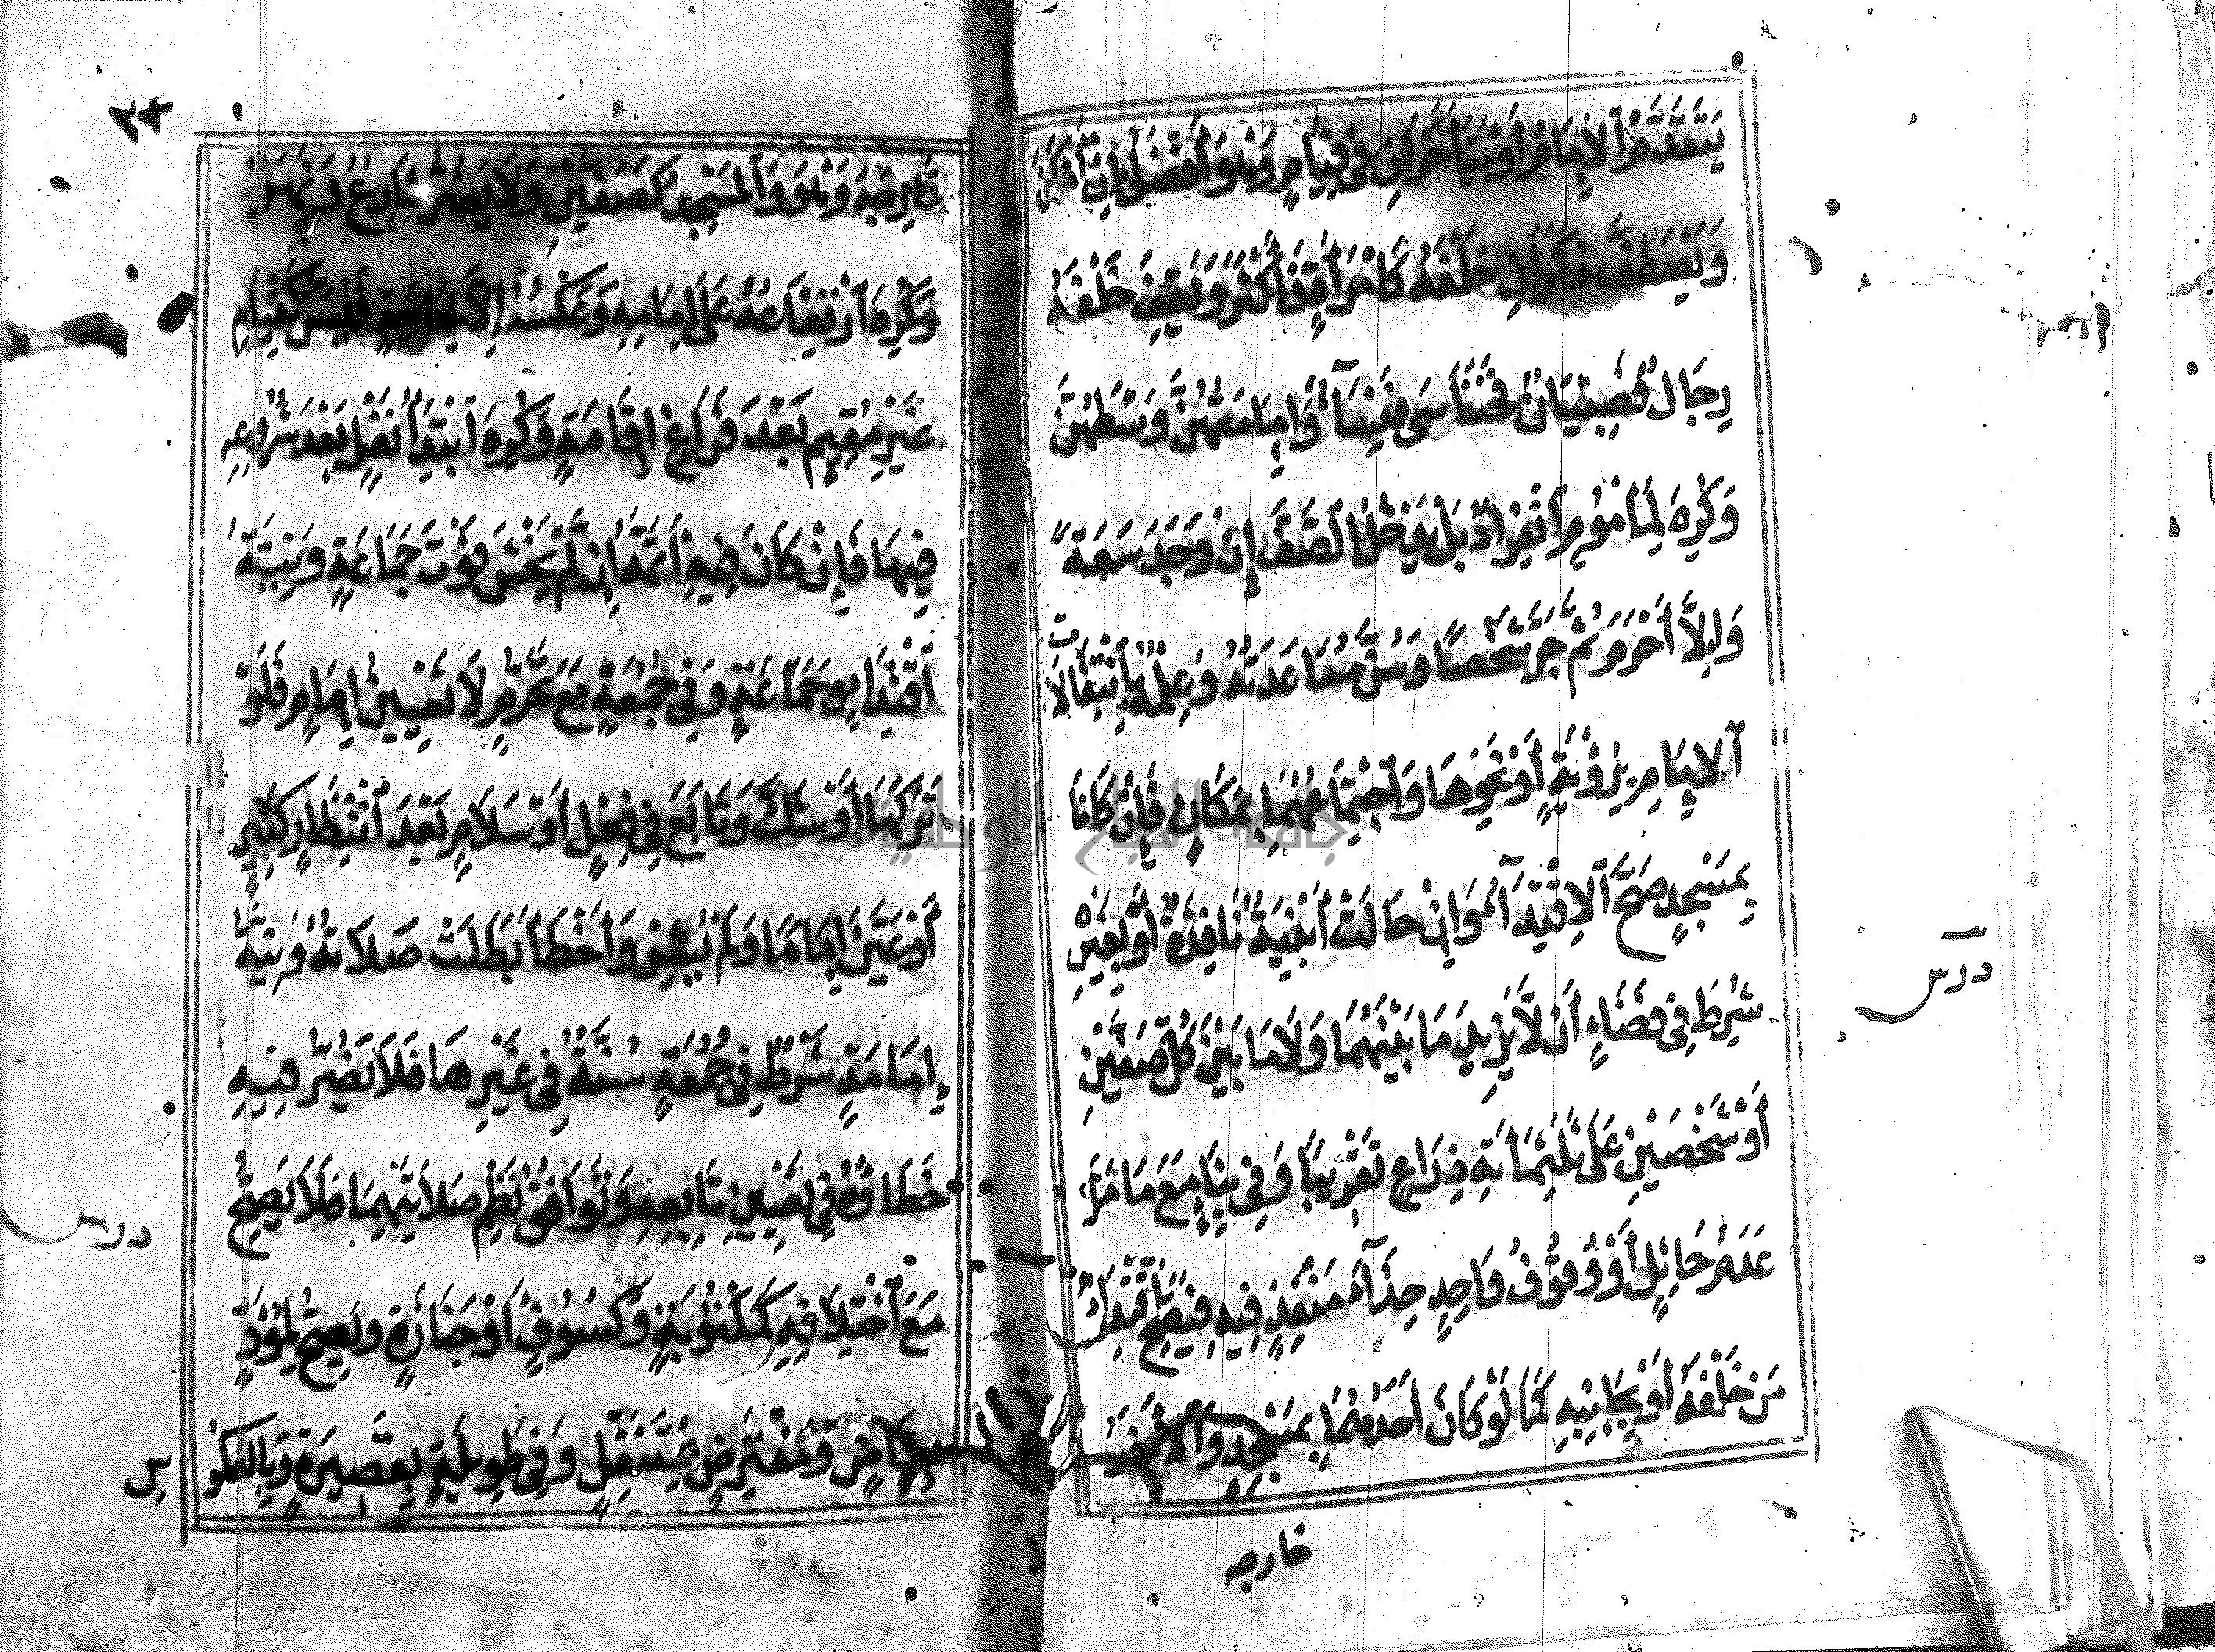 يَتَقَدَّمُ الْإِمَامُ أَوْ يَتَأَخَّرَانِ فِي قِيَامٍ وَهُوَ أَفْضَلُ إِنْ أَمْكَنَ
وَيَصْطَفُّ ذَكَرَانِ خَلْفَهُ كَامْرَأَةٍ فَأَكْثَرَ وَيَقِفُ خَلْفَهُ
رِجَالٌ فَصِبْيَانٌ فَخَنَاثَى فَنِسَآءٌ وَإِمَامَتُهُنَّ وَسْطَهُنَّ
وَكُرِهَ لِمَأْمُومٍ انْفِرَادٌ بَلْ يَدْخُلُ الصَّفَّ إِنْ وَجَدَ سَعَةً
وَإِلَّا أَحْرَمَ ثُمَّ جَرَّ شَخْصًا وَسُنَّ مُسَاعَدَتُهُ وَعِلْمٌ بِانْتِقَالَاتِ
الْإِمَامِ بِرُؤْيَةٍ أَوْ نَحْوِهَا وَاجْتِمَاعُهُمَا بِمَكَانٍ فَإِنْ كَانَا
بِمَسْجِدٍ صَحَّ الِاقْتِدَآءُ وَإِنْ حَالَتْ أَبْنِيَةٌ نَافِذَةٌ أَوْ بِغَيْرِهِ
شُرِطَ فِي فَضَاءٍ أَنْ لَّا يَزِيدَ مَا بَيْنَهُمَا وَلَا مَا بَيْنَ كُلِّ صَفَّيْنِ
أَوْ شَخْصَيْنِ عَلَى ثَلَثِمِائَةِ ذِرَاعٍ تَقْرِيبًا وَفِي بِنَاءٍ مَعَ مَا مَرَّ
عَدَمُ حَائِلٍ أَوْ وُقُوفُ وَاحِدٍ حِذَآءَ مَنْفَذٍ فِيهِ فَيَصِحُّ اقْتِدَاءُ
مَنْ خَلْفَهُ أَوْ بِجَانِبِهِ كَمَا لَوْ كَانَ أَحَدُهُمَا بِمَسْجِدٍ وَالْآخَرُ
خارجه
درس
خَارِجَهُ وَهُوَ وَالْمَسْجِدُ كَصَفَّيْنِ وَلَا يَضُرُّ شَارِعٌ
وَكُرِهَ ارْتِفَاعُهُ عَلَى إِمَامِهِ وَعَكْسُهُ إِلَّا لِحَاجَةٍ فَيُسَنُّ كَقِيَامِ
غَيْرِ مُقِيمٍ بَعْدَ فَرَاغِ إِقَامَةٍ وَكُرِهَ ابْتِدَاءُ نَفْلٍ بَعْدَ شُرُوعِهِ
فِيهَا فَإِنْ كَانَ فِيهِ أَتَمَّهُ إِنْ لَّمْ يَخْشَ فَوْتَ جَمَاعَةٍ وَنِيَّةُ
اقْتِدَاءٍ أَوْ جَمَاعَةٍ وَفِي جُمُعَةٍ مَعَ تَحَرُّمٍ لَا تَعْيِينُ إِمَامٍ فَلَوْ
تَرَكَهَا أَوْ شَكَّ وَتَابَعَ فِي فِعْلٍ أَوْ سَلَامٍ بَعْدَ انْتِظَارٍ كَثِيرٍ
أَوْ عَيَّنَ إِمَامًا وَلَمْ يُشِرْ وَأَخْطَأَ بَطَلَتْ صَلَاتُهُ وَنِيَّةُ
إِمَامَةٍ شَرْطٌ فِي جُمُعَةٍ سُنَّةٌ فِي غَيْرِهَا فَلَا يَضُرُّ فِيهِ
خَطَاؤُهُ فِي تَعْيِينِ تَابِعِهِ وَتَوَافُقُ نَظْمِ صَلَاتَيْهِمَا فَلَا يَصِحُّ
مَعَ اخْتِلَافِهِ كَمَكْتُوبَةٍ وَكُسُوفٍ أَوْ جَنَازَةٍ وَيَصِحُّ لِمُؤَدٍّ
بِقَاضٍ وَمُفْتَرِضٍ بِمُتَنَفِّلٍ وَفِي طَوِيلَةٍ بِقَصِيرَةٍ وَبِالْعُكُو
سِ
درس